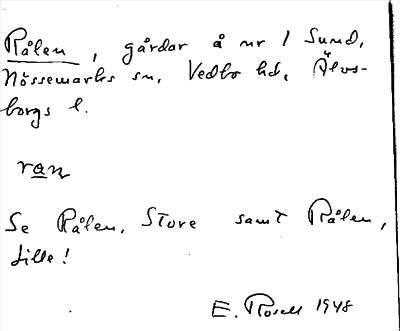 Rålen, gårdar å nr 1 Sund,
Nössemarks sn, Vedbo hd, Älvs-
borgs l.
ran
Se Rålen, Store samt Rålen,
Lille!
E. Rosell 1948